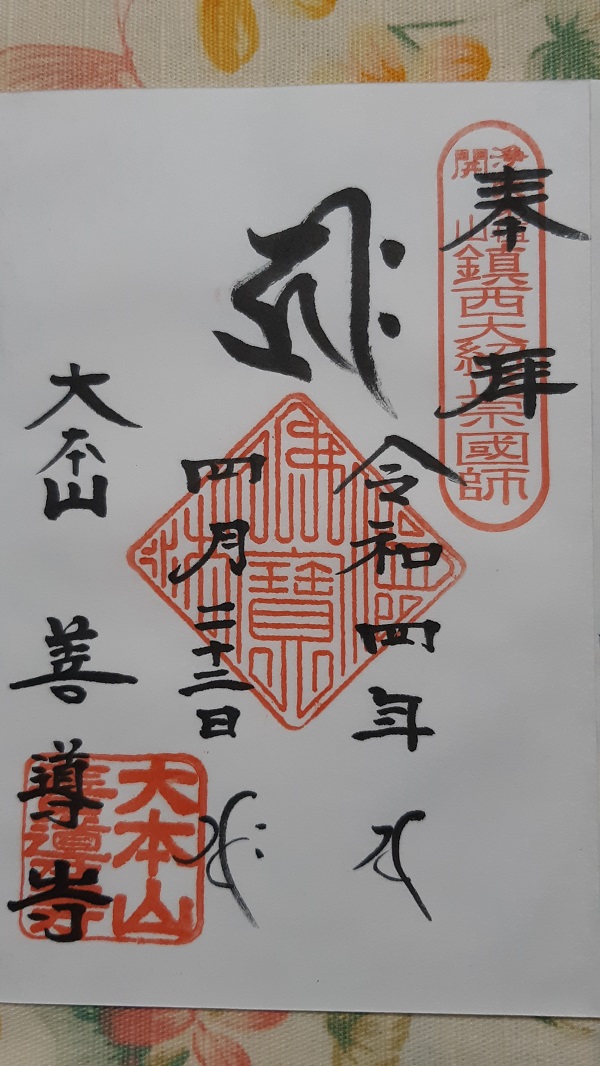 奉拝
開山
鎮西大紹宗國師
令和四年
四月二十三日
佛法僧寶
大本山 善導寺
大本山
善導寺